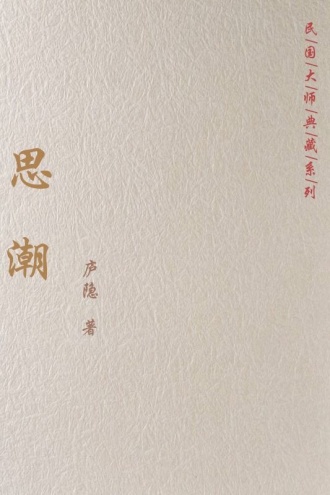 民国大师典藏系列
思潮
庐隐 著